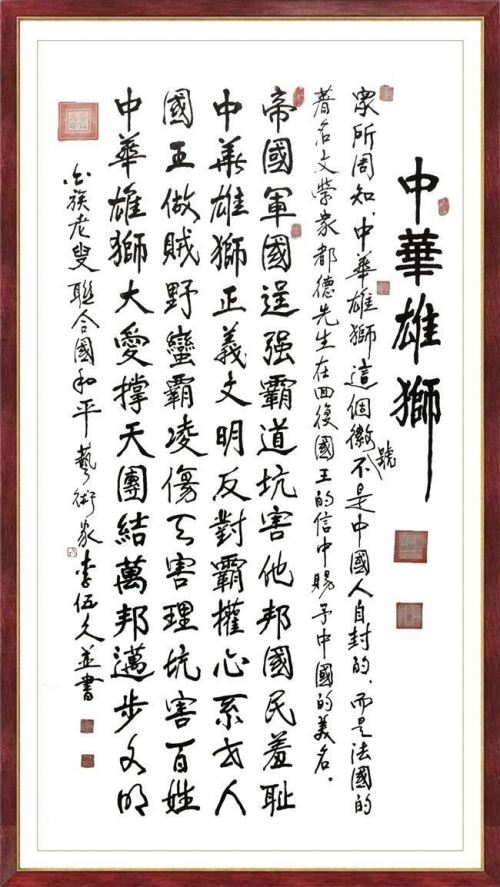 中華雄獅
眾所周知，中華雄獅這個徽號不是中國人自封的，而是法國的
著名文學家都德先生在回復國王的信中賜予中國的美名。
帝國軍國逞强霸道坑害他邦國民羞耻
中華雄獅正義文明反對霸權心系世人
國王做賊野蠻霸凌傷天害理坑害百姓
中華雄獅大愛撐天團結萬邦邁步文明
白族老叟聯合國和平藝術家李伍久並書